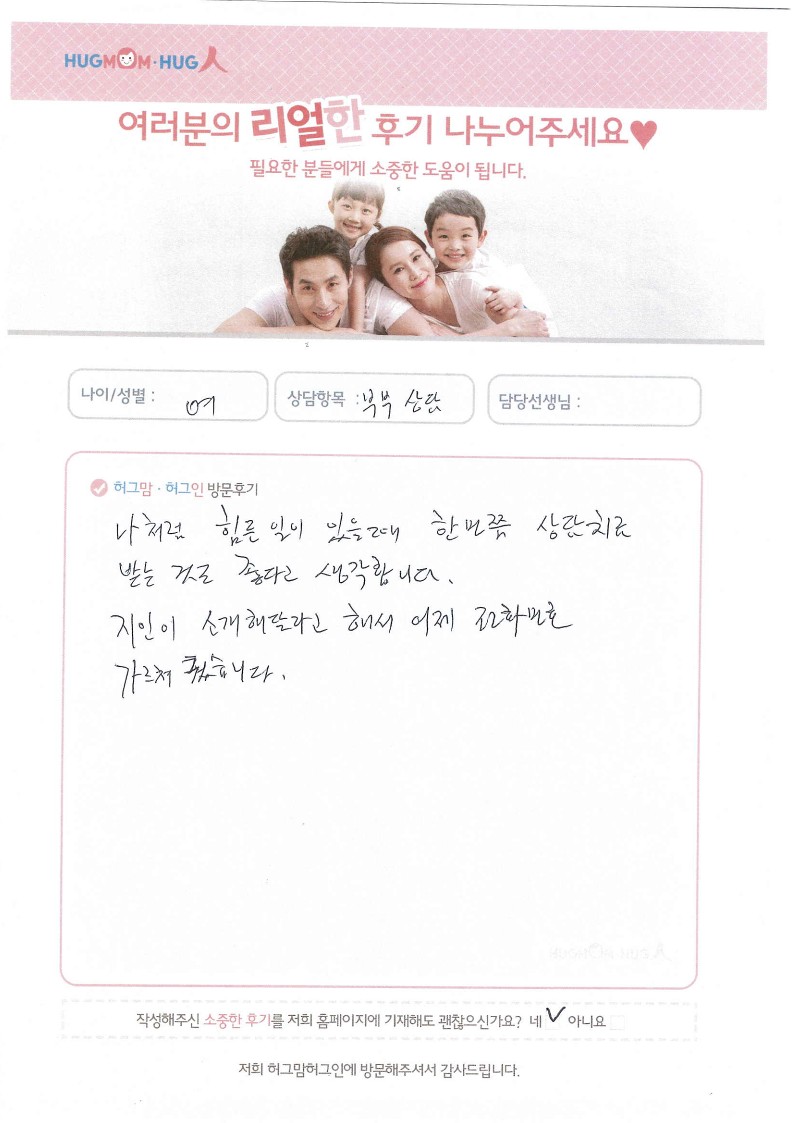 HUGMOM·HUG人
여러분의 리얼한 후기 나누어주세요♥
필요한 분들에게 소중한 도움이 됩니다.
나이/성별 : 여
상담항목 : 부부 상담
담당선생님 :
허그맘 · 허그인 방문후기
나처럼 힘든 일이 있을때 한번쯤 상담치료
받는 것도 좋다고 생각합니다.
지인이 소개해달라고 해서 어제 전화번호
가르쳐 줬습니다.
작성해주신 소중한 후기를 저희 홈페이지에 기재해도 괜찮으신가요? 네 V 아니요
저희 허그맘허그인에 방문해주셔서 감사드립니다.